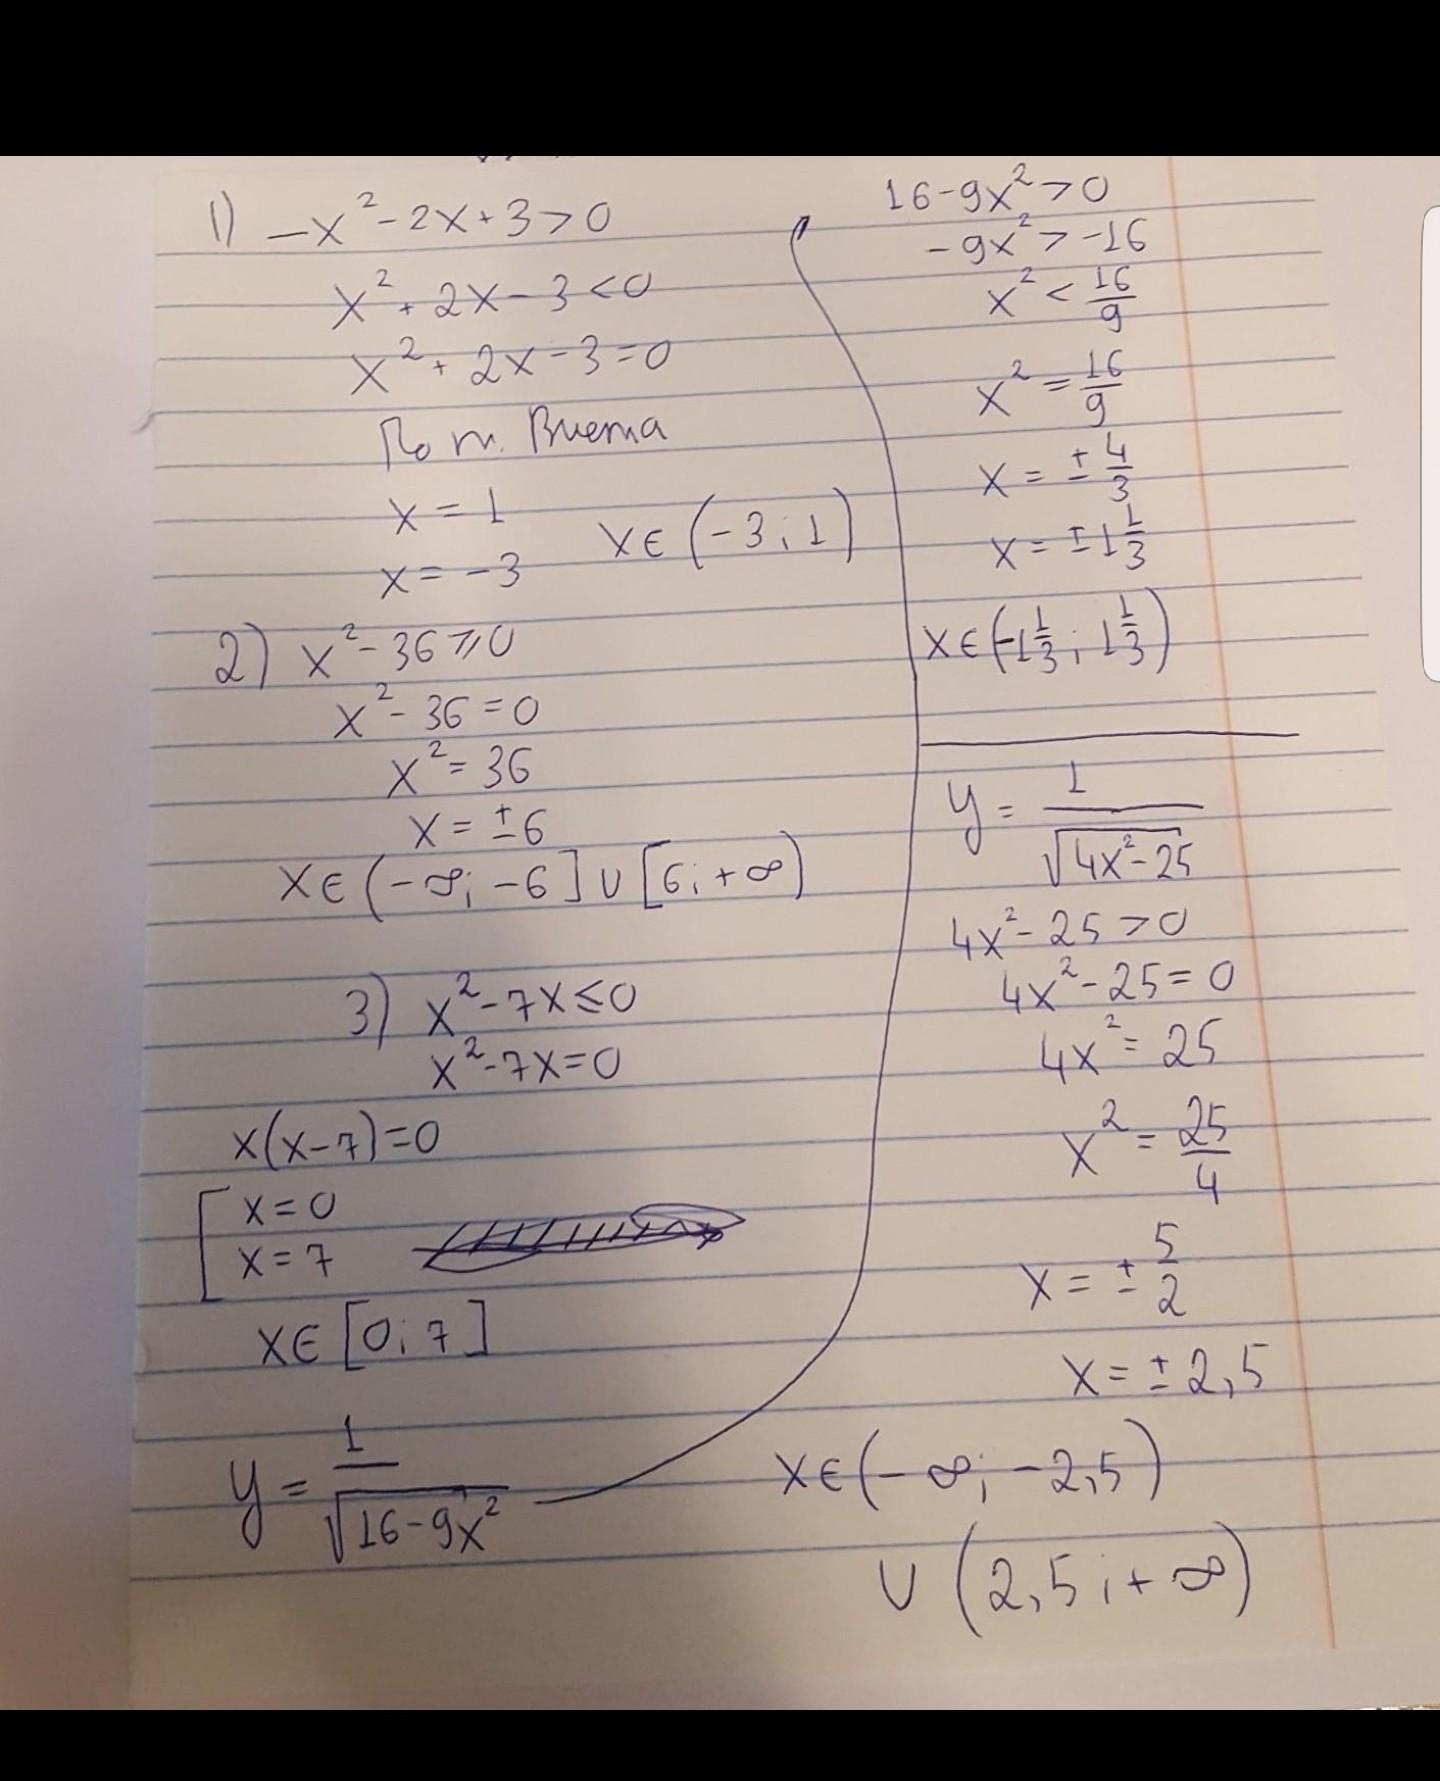 1) -x² - 2x + 3 > 0
x² + 2x - 3 < 0
x² + 2x - 3 = 0
По т. Виета
x = 1
x = -3 x ∈ (-3; 1)
2) x² - 36 ⩾ 0
x² - 36 = 0
x² = 36
x = ±6
x ∈ (-∞; -6] ∪ [6; +∞)
3) x² - 7x ≤ 0
x² - 7x = 0
x(x - 7) = 0
[ x = 0
x = 7
x ∈ [0; 7]
y = 1/√(16 - 9x²)
16 - 9x² > 0
-9x² > -16
x² < 16/9
x² = 16/9
x = ± 4/3
x = ± 1 1/3
x ∈ (-1 1/3; 1 1/3)
y = 1/√(4x² - 25)
4x² - 25 > 0
4x² - 25 = 0
4x² = 25
x² = 25/4
x = ± 5/2
x = ± 2,5
x ∈ (-∞; -2,5)
∪ (2,5; +∞)